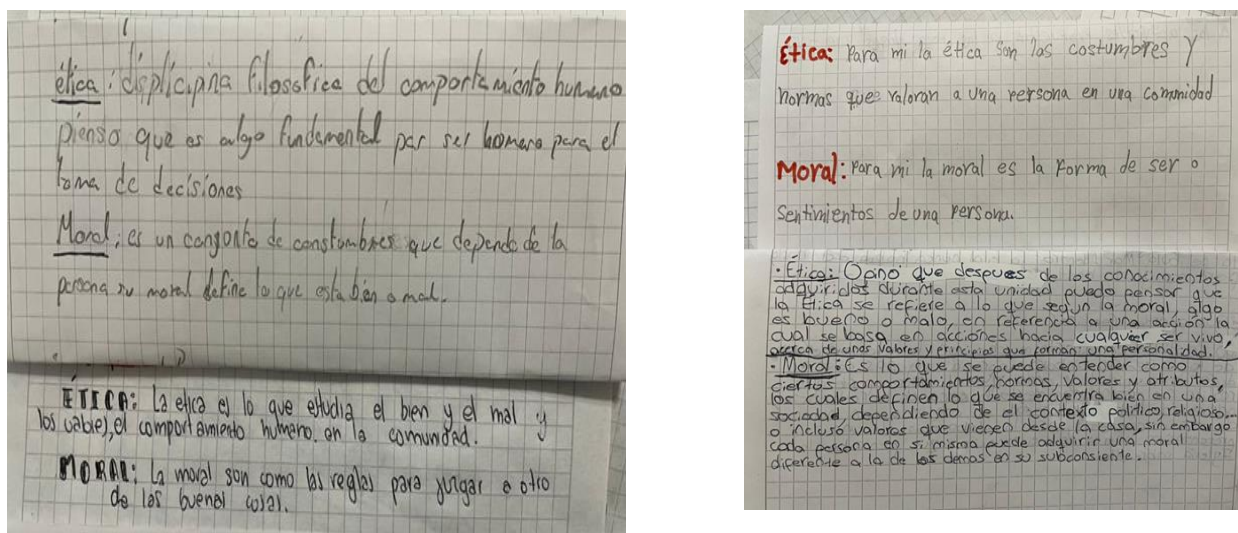 ética: displicpina filosofica del comportamiento humano
pienso que es algo fundamental por ser homano para el
toma de decisiones
Moral; es un congonto de constumbres que depende de la
persona su moral define lo que esta bien o mal.
ETICA: La etica es lo que estudia el bien y el mal y
los vables, el comportamiento humeno. en la comunidad.
MORAL: La moral son como las reglas para jurgar a otro
de las buenas cosas.
Ética: Para mi la ética son las costumbres y
normas que valoran a una persona en una comunidad
Moral: Para mi la moral es la Forma de ser o
Sentimientos de una Persona.
· Ética: Opino que despues de los conocimientos
adquiridos durante esta unidad puedo pensar que
la Ética se refiere a lo que según la moral, algo
es bueno o malo, en referencia a una acción la
cual se basa en acciones hacia cualquier ser vivo,
acerca de unos valores y principios que forman una personalidad.
· Moral: Es lo que se puede entender como
ciertos comportamientos, normas, valores y atributos,
los cuales definen lo que se encuentra bien en una
sociedad, dependiendo de el contexto politico, religioso...
o incluso valores que vienen desde la casa, sin embargo
cada persona en si misma puede adquirir una moral
diferente a la de los demas en su subconsiente.